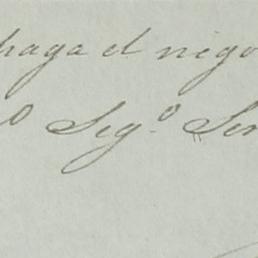 haga el nego
o Seg.o Ser